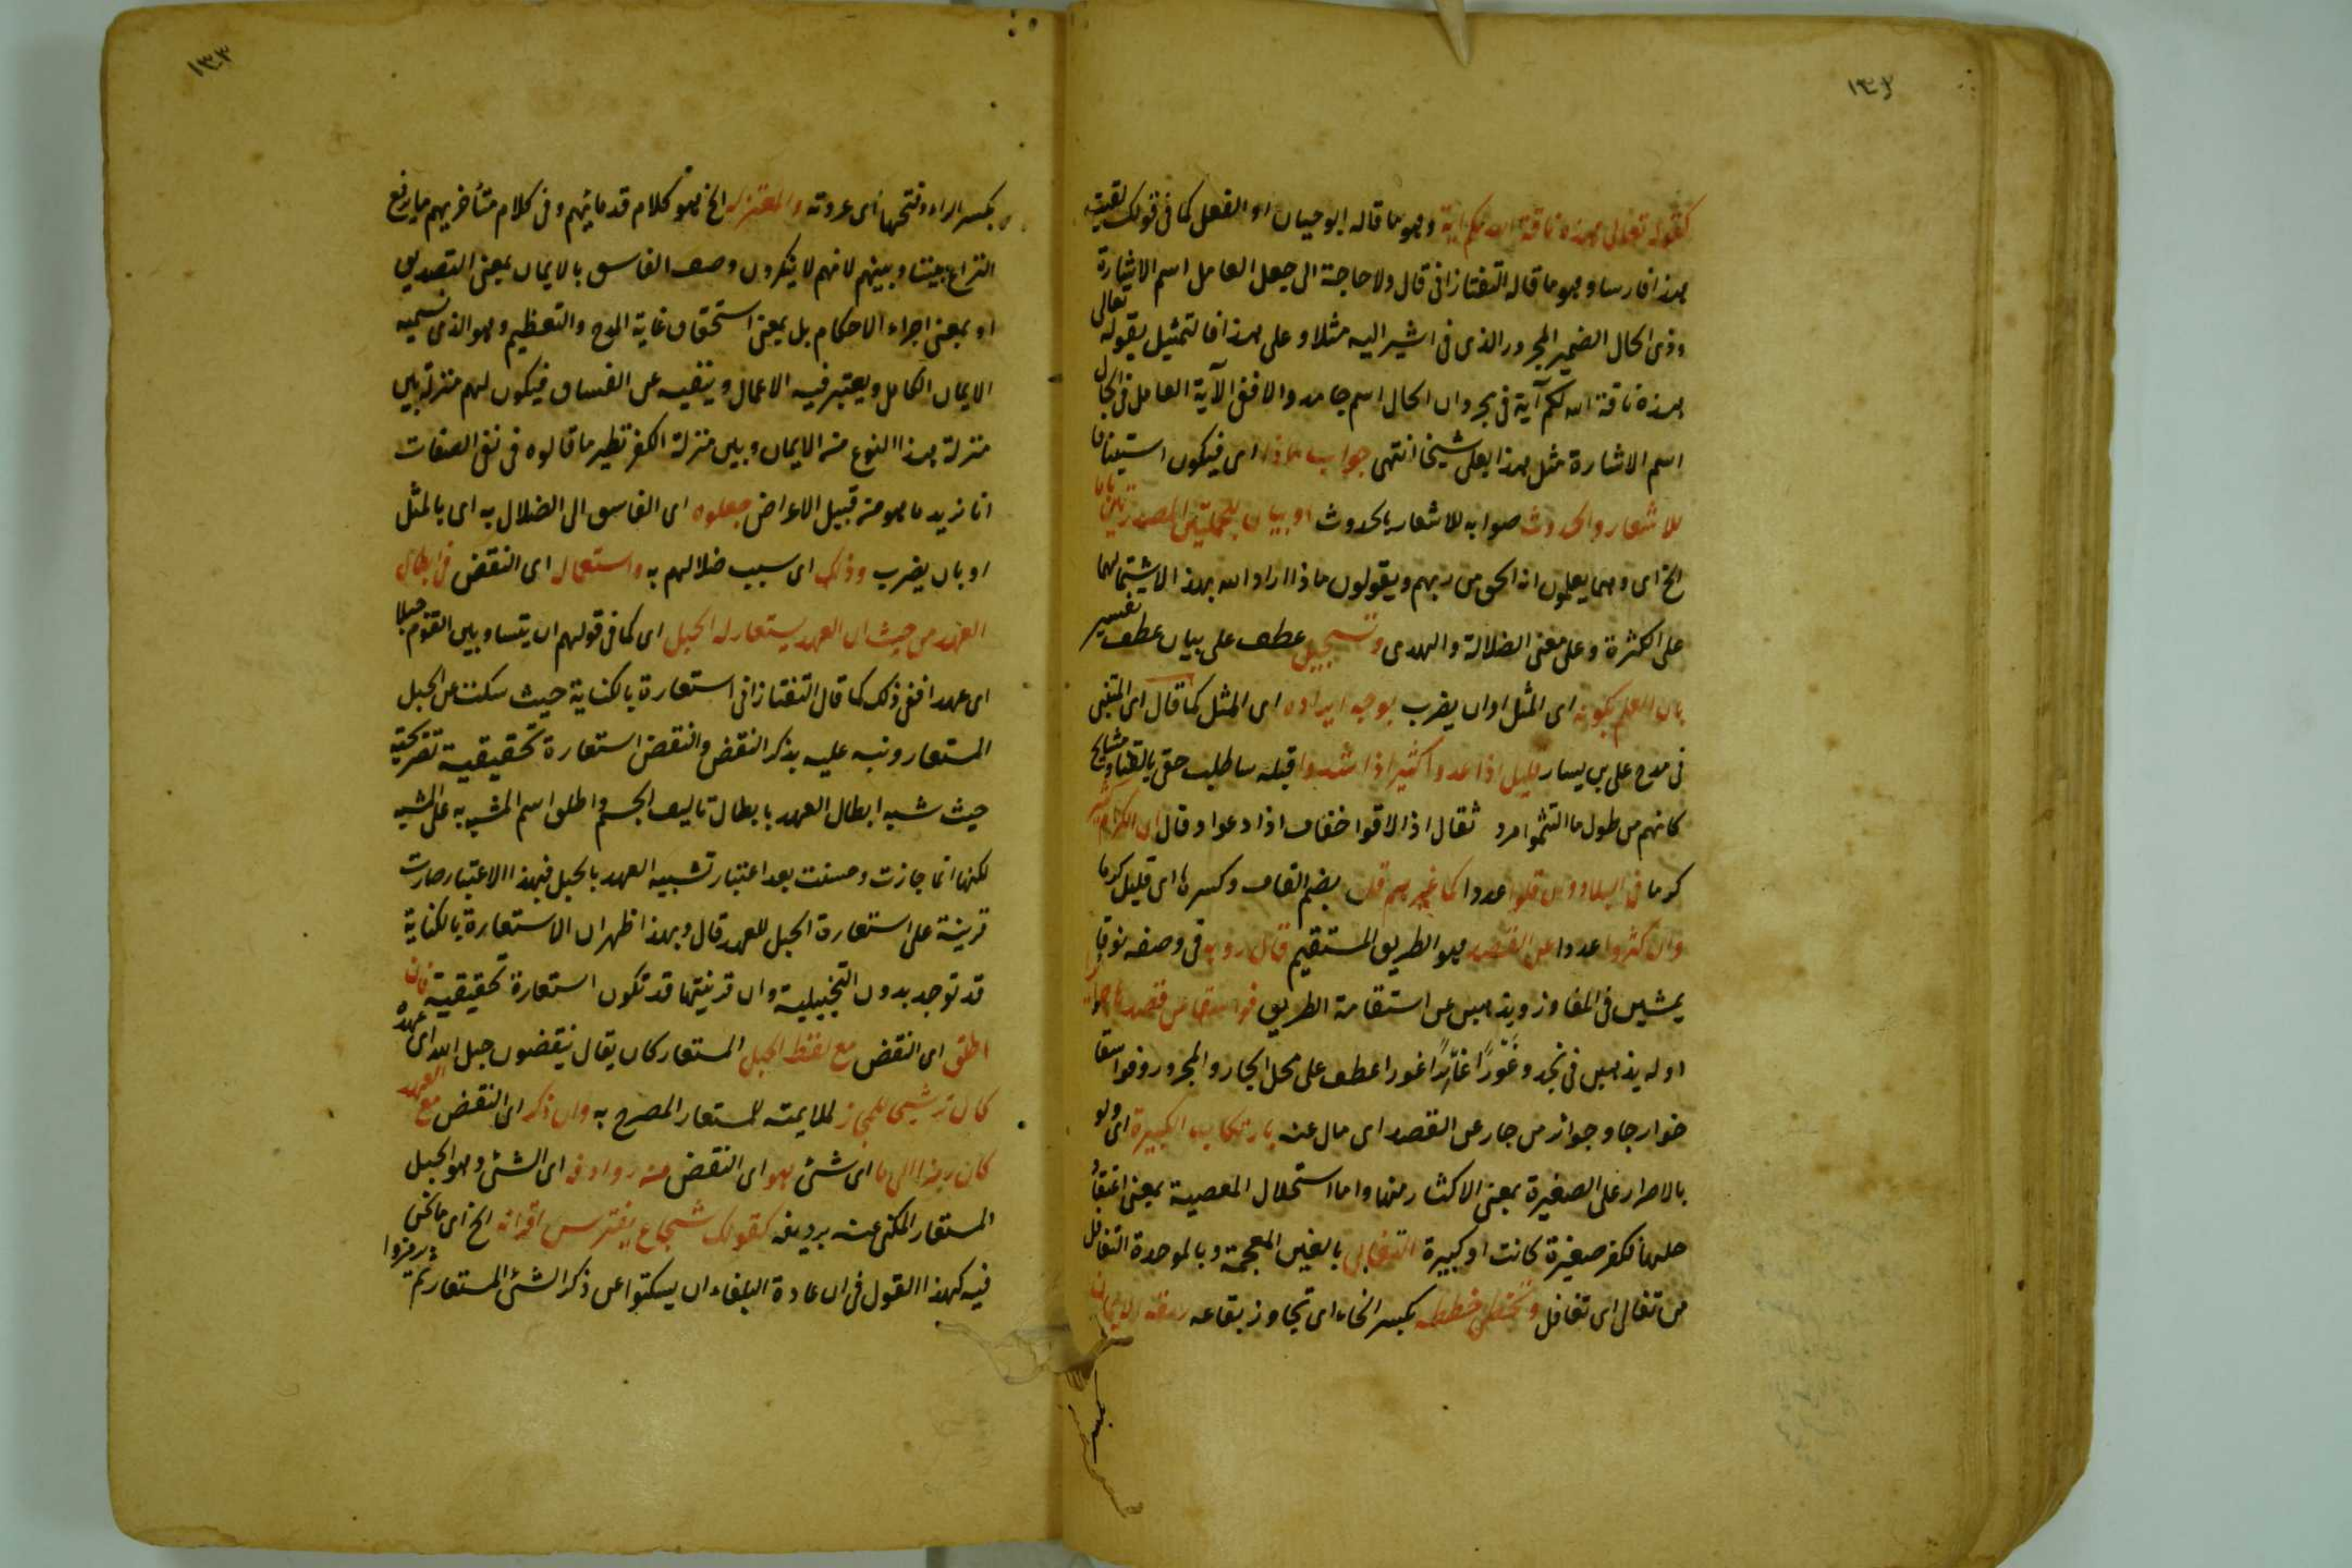 ١٣٢
كقوله تعالى هذه ناقة الله لكم آية وهو ما قاله ابو حيان او الفعل كما فى قولك لقيت
هذا فارسا وهو ما قاله التفتازانى قال ولا حاجة الى جعل العامل اسم الاشارة
وذى الحال الضمير المجرور الذى فى اشير اليه مثلا وعلى هذا فالتمثيل بقوله تعالى
هذه ناقة الله لكم آية فى مجرد ان الحال اسم جامد والا ففى الآية العامل فى الحال
اسم الاشارة مثل هذا بعلى شيخا انتهى جواب ماذا اى فيكون استينافا
للاشعار والحدوث صوابه للاشعار بالحدوث او بيان للجملتين المصدرتين باما
الخ اى وهما يعلمون انه الحق من ربهم ويقولون ماذا اراد الله بهذا لاشتمالهما
على الكثرة وعلى معنى الضلالة والهدى وتسجيل عطف على بيان عطف تفسير
بان العلم بكونه اى المثل او ان يضرب بوجه ايراده اى المثل كما قال اى المتنبى
فى مدح على بن يسار قليل اذا عدوا كثير اذا شدوا قبله ساطلب حقى بالقنا ومشايخ
كانهم من طول ما التثموا مرد ثقال اذا لاقوا خفاف اذا دعوا وقال ان الكرام كثير
كرما فى البلاد وان قلوا عددا كما غيرهم قل بضم القاف وكسرها اى قليل كرما
وان كثروا عددا عن القصد هو الطريق المستقيم قال رؤبة فى وصفه نوقا
يمشين فى المفاوز ويذهبن عن استقامة الطريق فواسقا عن قصدها جوائرا
اوله يذهبن فى نجد وغَوْرًا غائرًا غورا عطف على محل الجار والمجرور وفواسقا
خوارجا وجوائر من جار عن القصد اى مال عنه بارتكاب الكبيرة اى ولو
بالاصرار على الصغيرة بمعنى الاكثار منها واما استحلال المعصية بمعنى اعتقاد
حلها فكفر صغيرة كانت او كبيرة التغابى بالغين المعجمة وبالموحدة التغافل
من تغابى اى تغافل وتخطى خططه بكسر الخاء اى تجاوز بقاعه ربقة الايمان
١٣٣
بكسر الراء وفتحها اى عروته والمعتزلة الخ هو كلام قدمائهم وفى كلام متأخريهم ما يرفع
النزاع بيننا وبينهم لانهم لا ينكرون وصف الفاسق بالايمان بمعنى التصديق
او بمعنى اجراء الاحكام بل بمعنى استحقاق غاية المدح والتعظيم وهو الذى نسميه
الايمان الكامل ويعتبر فيه الاعمال وينفيه عن الفساق فيكون لهم منزلة بين
منزلة هذا النوع من الايمان وبين منزلة الكفر نظير ما قالوه فى نفى الصفات
انا نريد ما هو من قبيل الاعراض جعلوه اى الفاسق الى الضلال به اى بالمثل
او بان يضرب وذلك اى سبب ضلالهم به واستعماله اى النقض فى ابطال
العهد من حيث ان العهد يستعار له الحبل اى كما فى قولهم ان بيننا وبين القوم حبالا
اى عهدا ففى ذلك كما قال التفتازانى استعارة بالكناية حيث سكت عن الحبل
المستعار ونبه عليه بذكر النقض والنقض استعارة تحقيقية تصريحية
حيث شبه ابطال العهد بابطال تاليف الجسم واطلق اسم المشبه به على المشبه
لكنها انما جازت وحسنت بعد اعتبار تشبيه العهد بالحبل فبهذا الاعتبار صارت
قرينة على استعارة الحبل للعهد قال وبهذا ظهر ان الاستعارة بالكناية
قد توجد بدون التخييلية وان قرينتها قد تكون استعارة تحقيقية فان
اطلق اى النقض مع لفظ الحبل المستعار كان يقال ينقضون حبل الله اى عهده
كان ترشيحا للمجاز لملايمته للمستعار المصرح به وان ذكر اى النقض مع العهد
كان رمزا الى ما اى شئ هو اى النقض من روادفه اى الشئ وهو الحبل
المستعار المكنى عنه برديفه كقولك شجاع يفترس اقرانه الخ اى ما نحن
فيه كهذا القول فى ان عادة البلغاء ان يسكتوا عن ذكر الشئ المستعار ثم يرمزوا